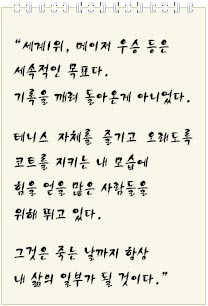 “세계1위, 메이저 우승 등은
세속적인 목표다.
기록을 깨려 돌아온게 아니었다.
테니스 자체를 즐기고 오래도록
코트를 지키는 내 모습에
힘을 얻을 많은 사람들을
위해 뛰고 있다.
그것은 죽는 날까지 항상
내 삶의 일부가 될 것이다.”